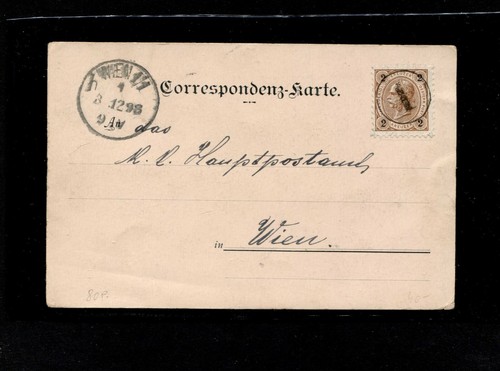 WIEN 1/1
1
3 12 98
9 V
Correspondenz-Karte.
2 2
2 2
An das
k. k. Hauptpostamt
in Wien.
80 F